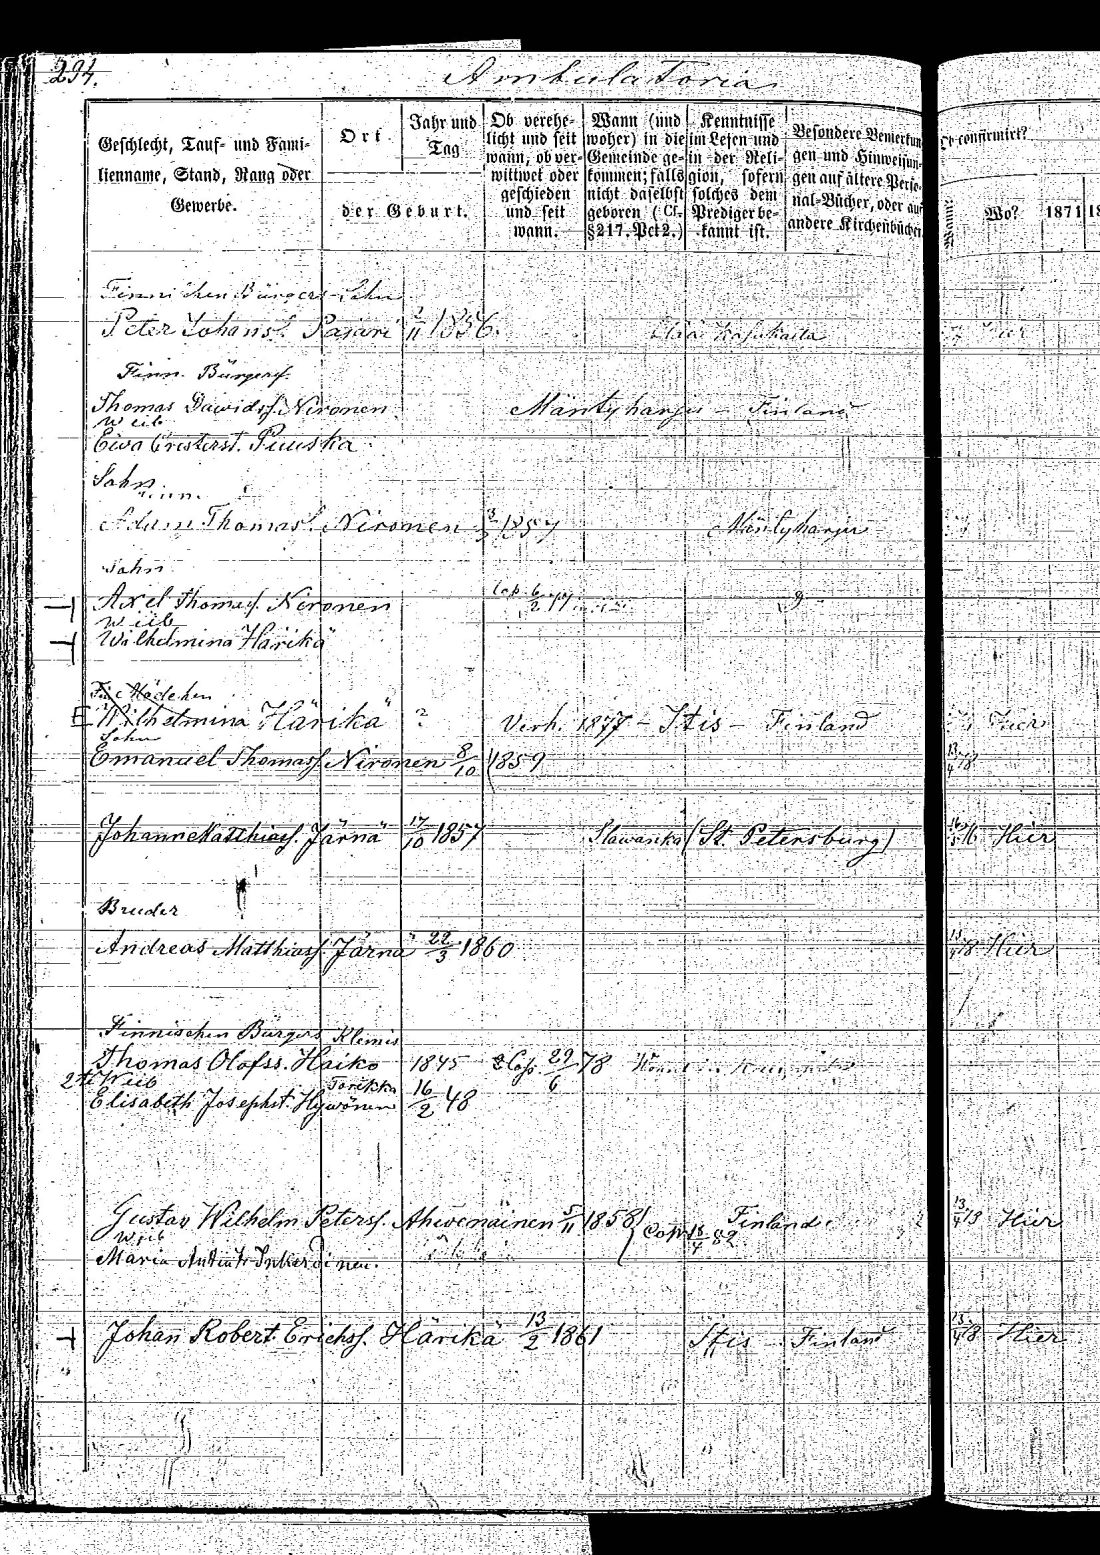 294.
Ambulatoria
Geschlecht, Tauf- und Fami-
lienname, Stand, Rang oder
Gewerbe.
Ort
Jahr und
Tag
der Geburt.
Ob verehe-
licht und seit
wann, ob ver-
wittwet oder
geschieden
und seit
wann.
Wann (und
woher) in die
Gemeinde ge-
kommen; falls
nicht daselbst
geboren (Cf.
§217. Pct 2.)
Kenntnisse
im Lesen und
in der Reli-
gion, sofern
solches dem
Prediger be-
kannt ist.
Besondere Bemerkun-
gen und Hinweisun-
gen auf ältere Perso-
nal-Bücher, oder auf
andere Kirchenbücher
Ob confirmirt?
Wann?
Wo?
1871
Finnischen Bürgers Sohn
Peter Johanss. Pajari 1856. Hier
Finn. Bürgers.
Thomas Dawidss. Nironen Mäntyharju - Finland
Weib
Ewa Cristerst. Puuska
Sohn
Adam Thomass. Nironen 1857 Mäntyharju
Sohn
Axel Thomass. Nironen Cop. 6/2 77
Weib
Wilhelmina Härikä
Fin. Mädchen
Wilhelmina Härikä ? Verh. 1877 - Itis - Finland Hier
Sohn
Emanuel Thomass. Nironen 8/10 1859 13/4 78
Johann Matthiass. Järnä 17/10 1857 Slawanka (St. Petersburg) 76 Hier
Bruder
Andreas Matthiass. Järnä 22/3 1860 78 Hier
Finnischen Bürgers Klemis
Thomas Olofss. Haiko 1845 Cop. 29/6 78
2te Weib Torikka
Elisabeth Josephst. Hywönen 16/2 48
Gustav Wilhelm Peterss. Ahwenäinen 5/11 1858 Finland 13/4 78 Hier
Weib Cop 18/4 82
Maria
Johan Robert Erichss. Härikä 13/2 1861 Itis Finland 78 Hier